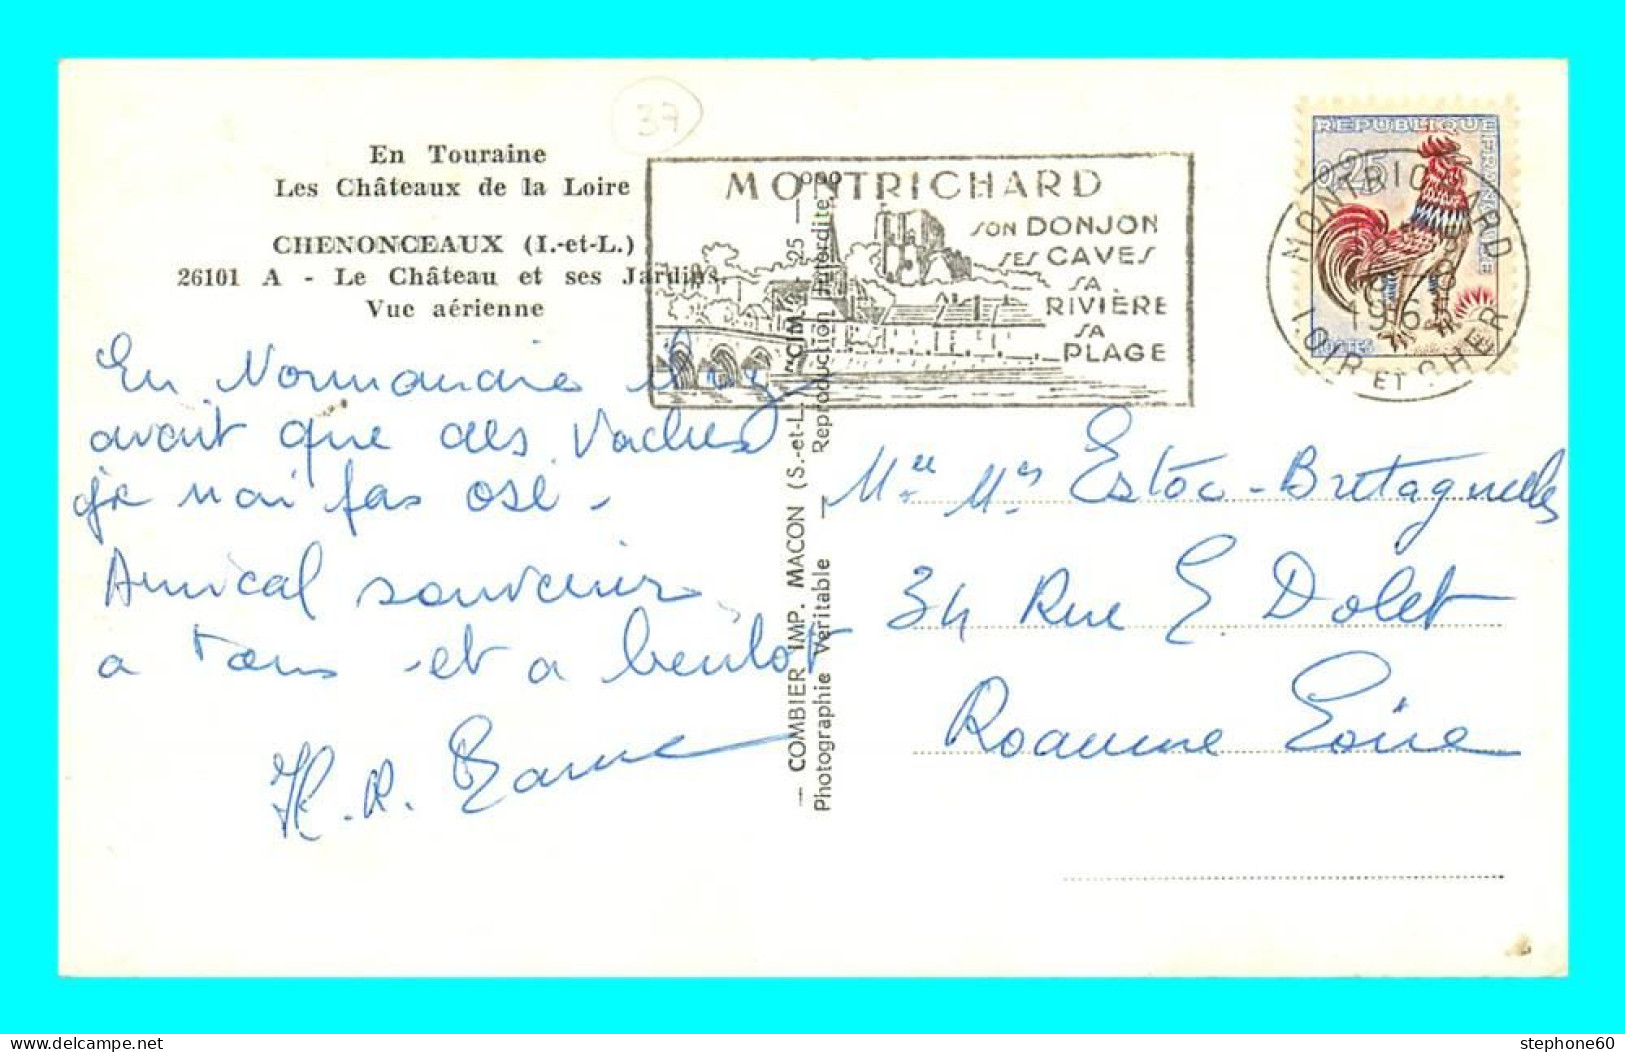 37
En Touraine
Les Châteaux de la Loire
CHENONCEAUX (I.-et-L.)
26101 A - Le Château et ses Jardins.
Vue aérienne
MONTRICHARD
SON DONJON
SES CAVES
SA
RIVIÈRE
SA
PLAGE
REPUBLIQUE FRANÇAISE
0,25
POSTES
MONTRICHARD
1965
LOIR ET CHER
En Normandie il n'y
avait que des vaches
je n'ai pas osé -
Amical souvenir
a tous et a bientot
H. R.
— COMBIER IMP. MACON (S.-et-L.) "CIM" 25 —
Photographie Véritable — Reproduction Interdite
Estoc - Bretagnolles
34 Rue E. Dolet
Roanne Loire
stephone60